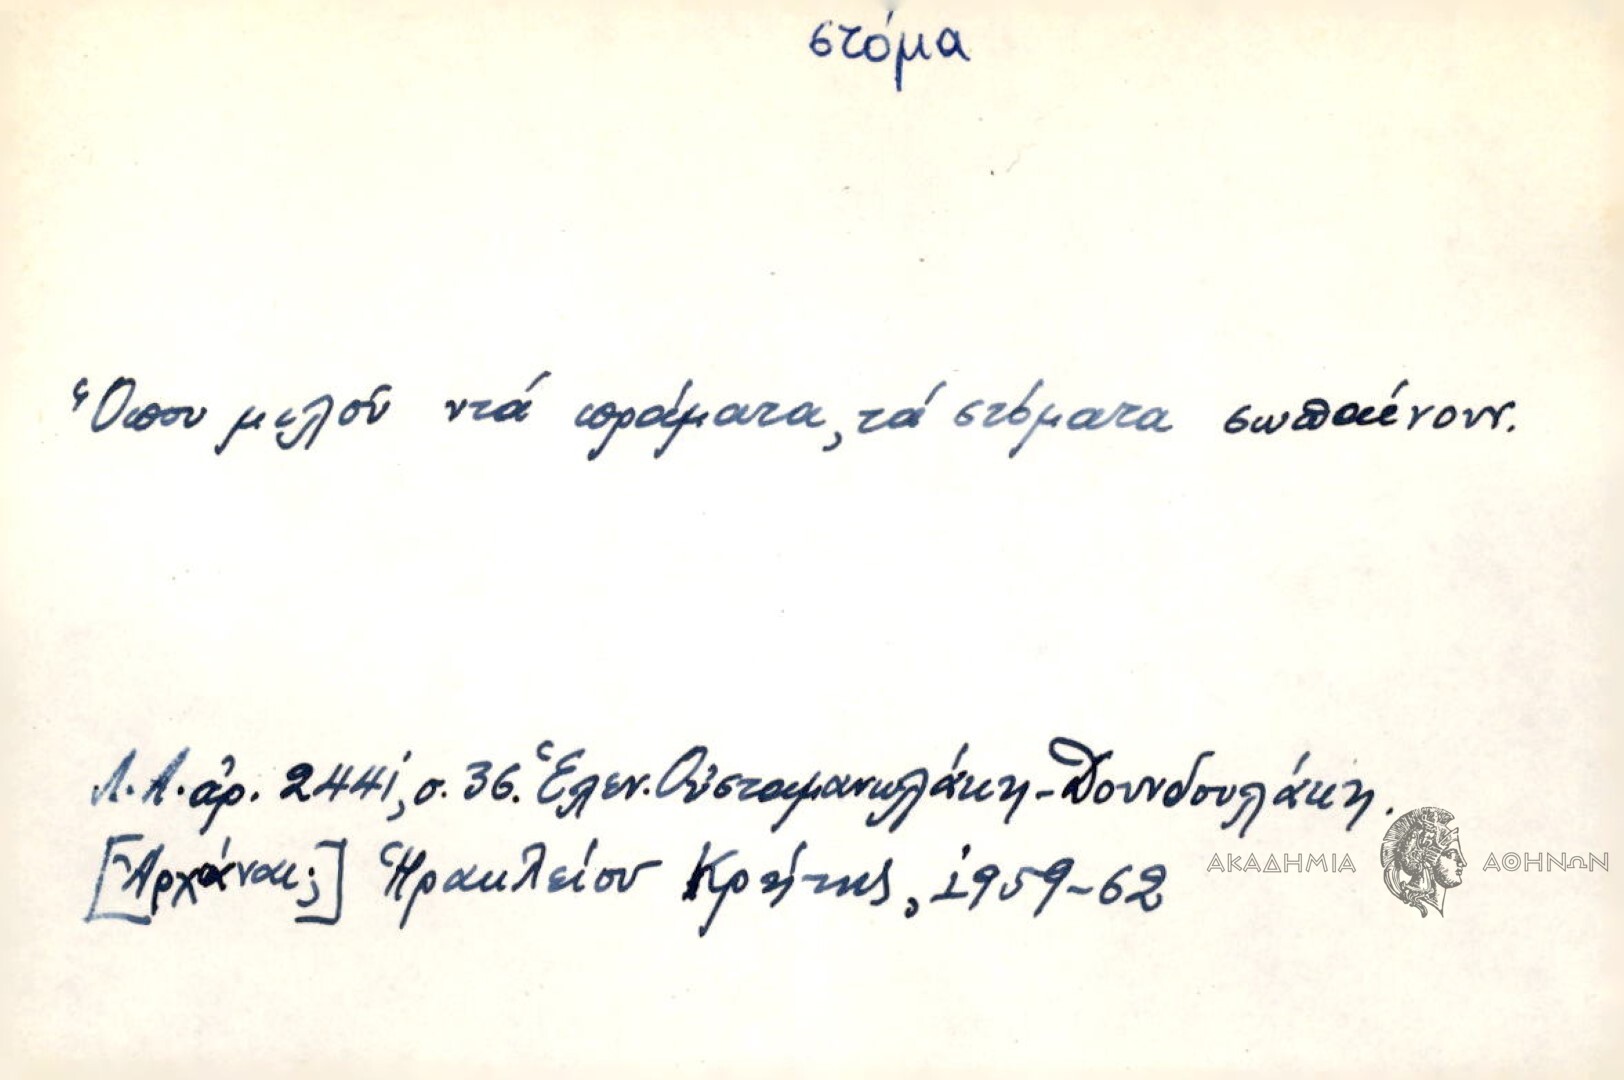 στόμα
Ὅπου μελοῦ ντά πράματα, τά στόματα σωπαίνουν.
Λ.Α. ἀρ. 2441, σ. 36. Ἑλεν. Οὐσταμανωλάκη-Δουνδουλάκη.
[Ἀρχάναι;] Ἡρακλείου Κρήτης, 1959-62
ΑΚΑΔΗΜΙΑ ΑΘΗΝΩΝ